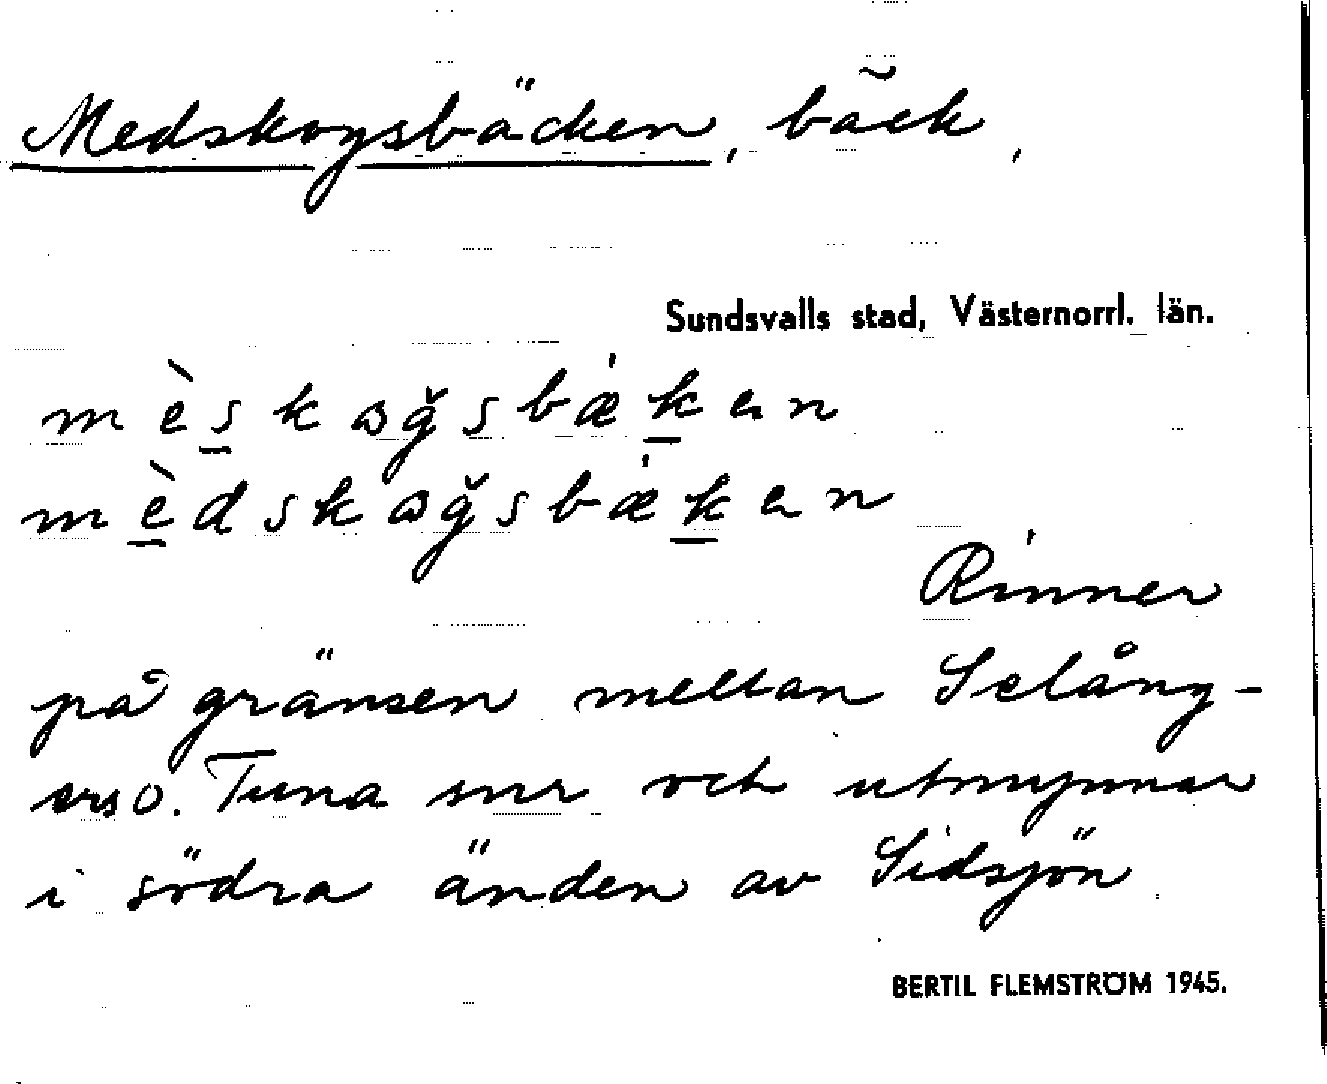 Medskogsbäcken, bäck,
Sundsvalls stad, Västernorrl. län.
mèskoğsbǽkɘn
mèdskoğsbǽkɘn
Rinner
på gränsen mellan Selång-
ers o. Tuna snr och utmynnar
i södra änden av Sidsjön
BERTIL FLEMSTRÖM 1945.